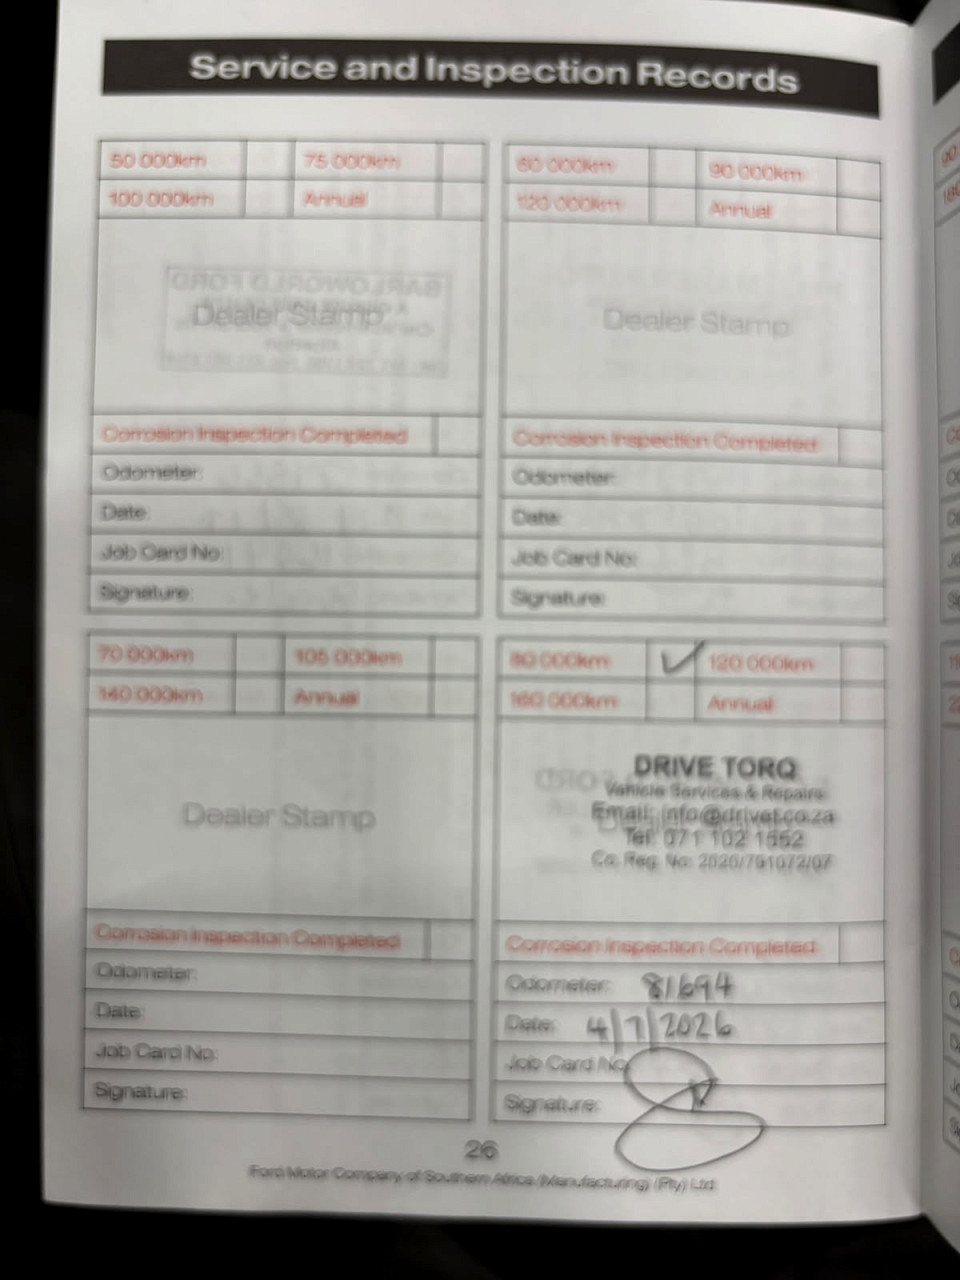 Service and Inspection Records
50 000km 75 000km
100 000km Annual
Dealer Stamp
Corrosion Inspection Completed
Odometer:
Date:
Job Card No:
Signature:
60 000km 90 000km
120 000km Annual
Dealer Stamp
Corrosion Inspection Completed
Odometer:
Date:
Job Card No:
Signature:
70 000km 105 000km
140 000km Annual
Dealer Stamp
Corrosion Inspection Completed
Odometer:
Date:
Job Card No:
Signature:
80 000km ✓ 120 000km
160 000km Annual
DRIVE TORQ
Vehicle Services & Repairs
Email: info@drivet.co.za
Tel: 071 102 1552
Co. Reg. No: 2020/751072/07
Corrosion Inspection Completed
Odometer: 81694
Date: 4/7/2026
Job Card No
Signature:
26
Ford Motor Company of Southern Africa (Manufacturing) (Pty) Ltd